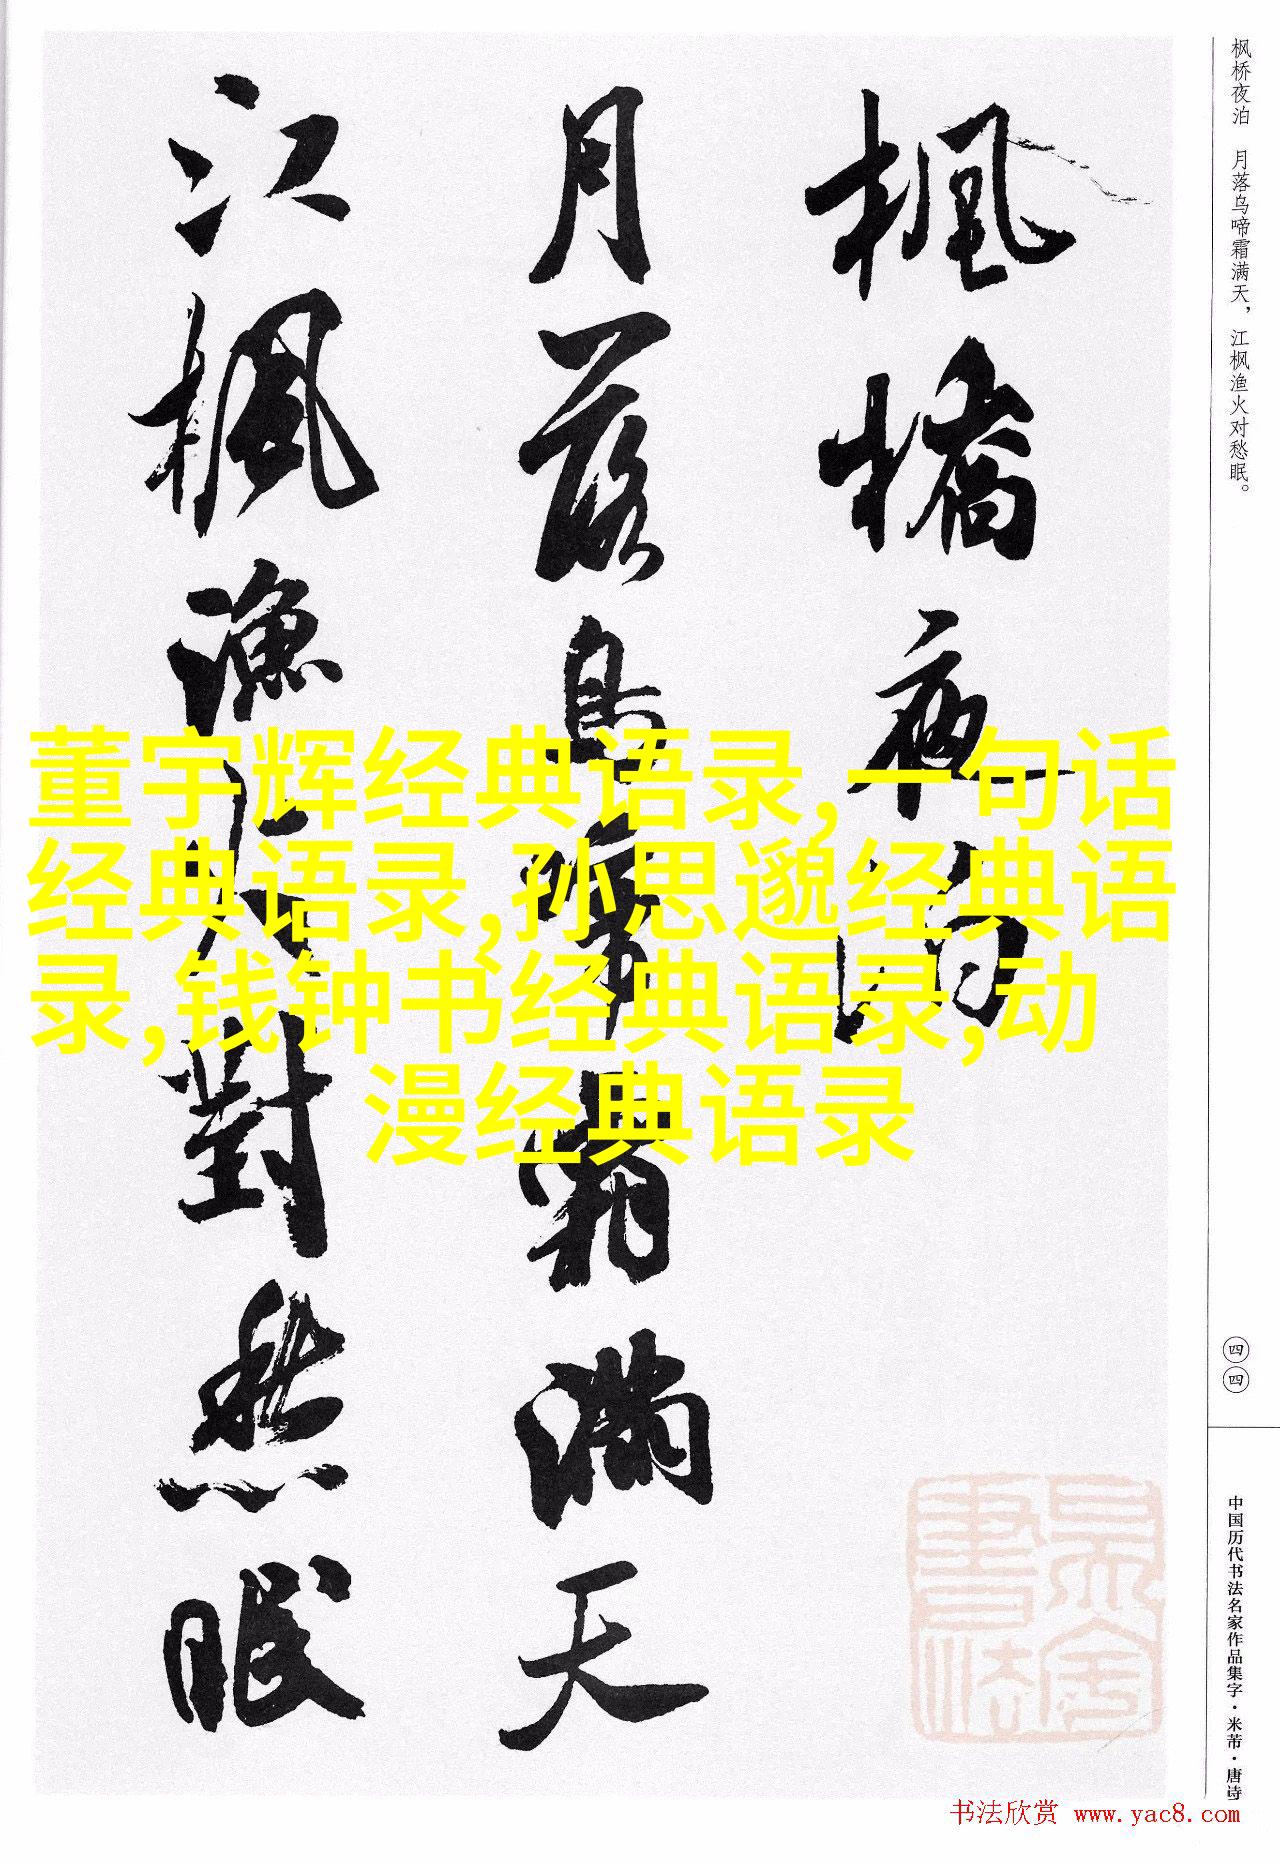 枫桥夜泊 月落乌啼霜满天，江枫渔火对愁眠。
四四
中国历代书法名家作品集字·米芾·唐诗
楓橋夜泊
月落烏啼霜滿天
江楓漁火對愁眠
董宇辉经典语录,一句话
经典语录,孙思邈经典语
录,钱钟书经典语录,动
漫经典语录
书法欣赏 www.yac8.com